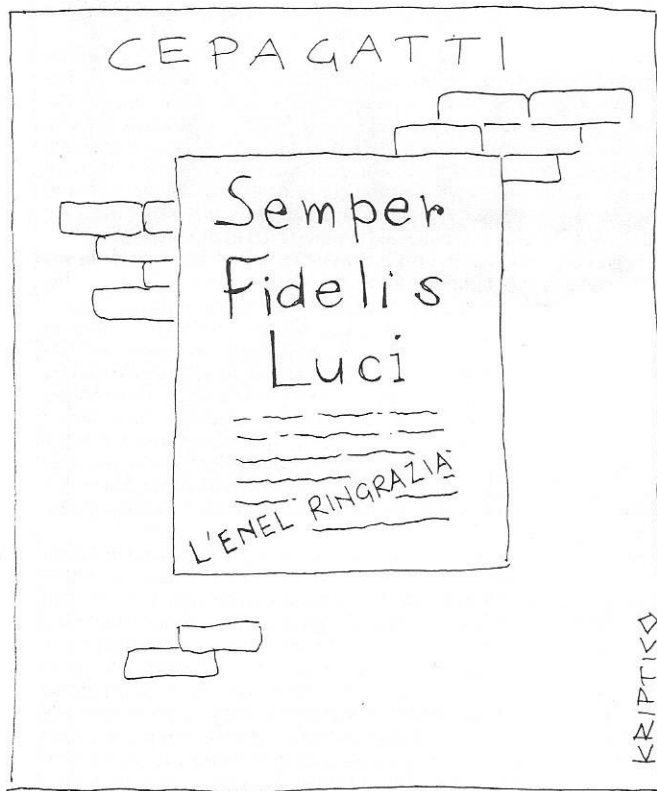 CEPAGATTI
Semper
Fidelis
Luci
L'ENEL RINGRAZIA
KRIPTICO